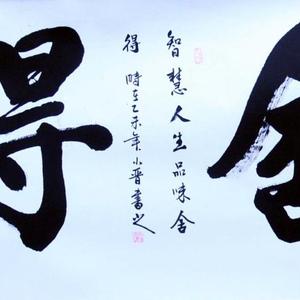 舍
智慧人生品味舍
得 時在乙未年小晋書之
得